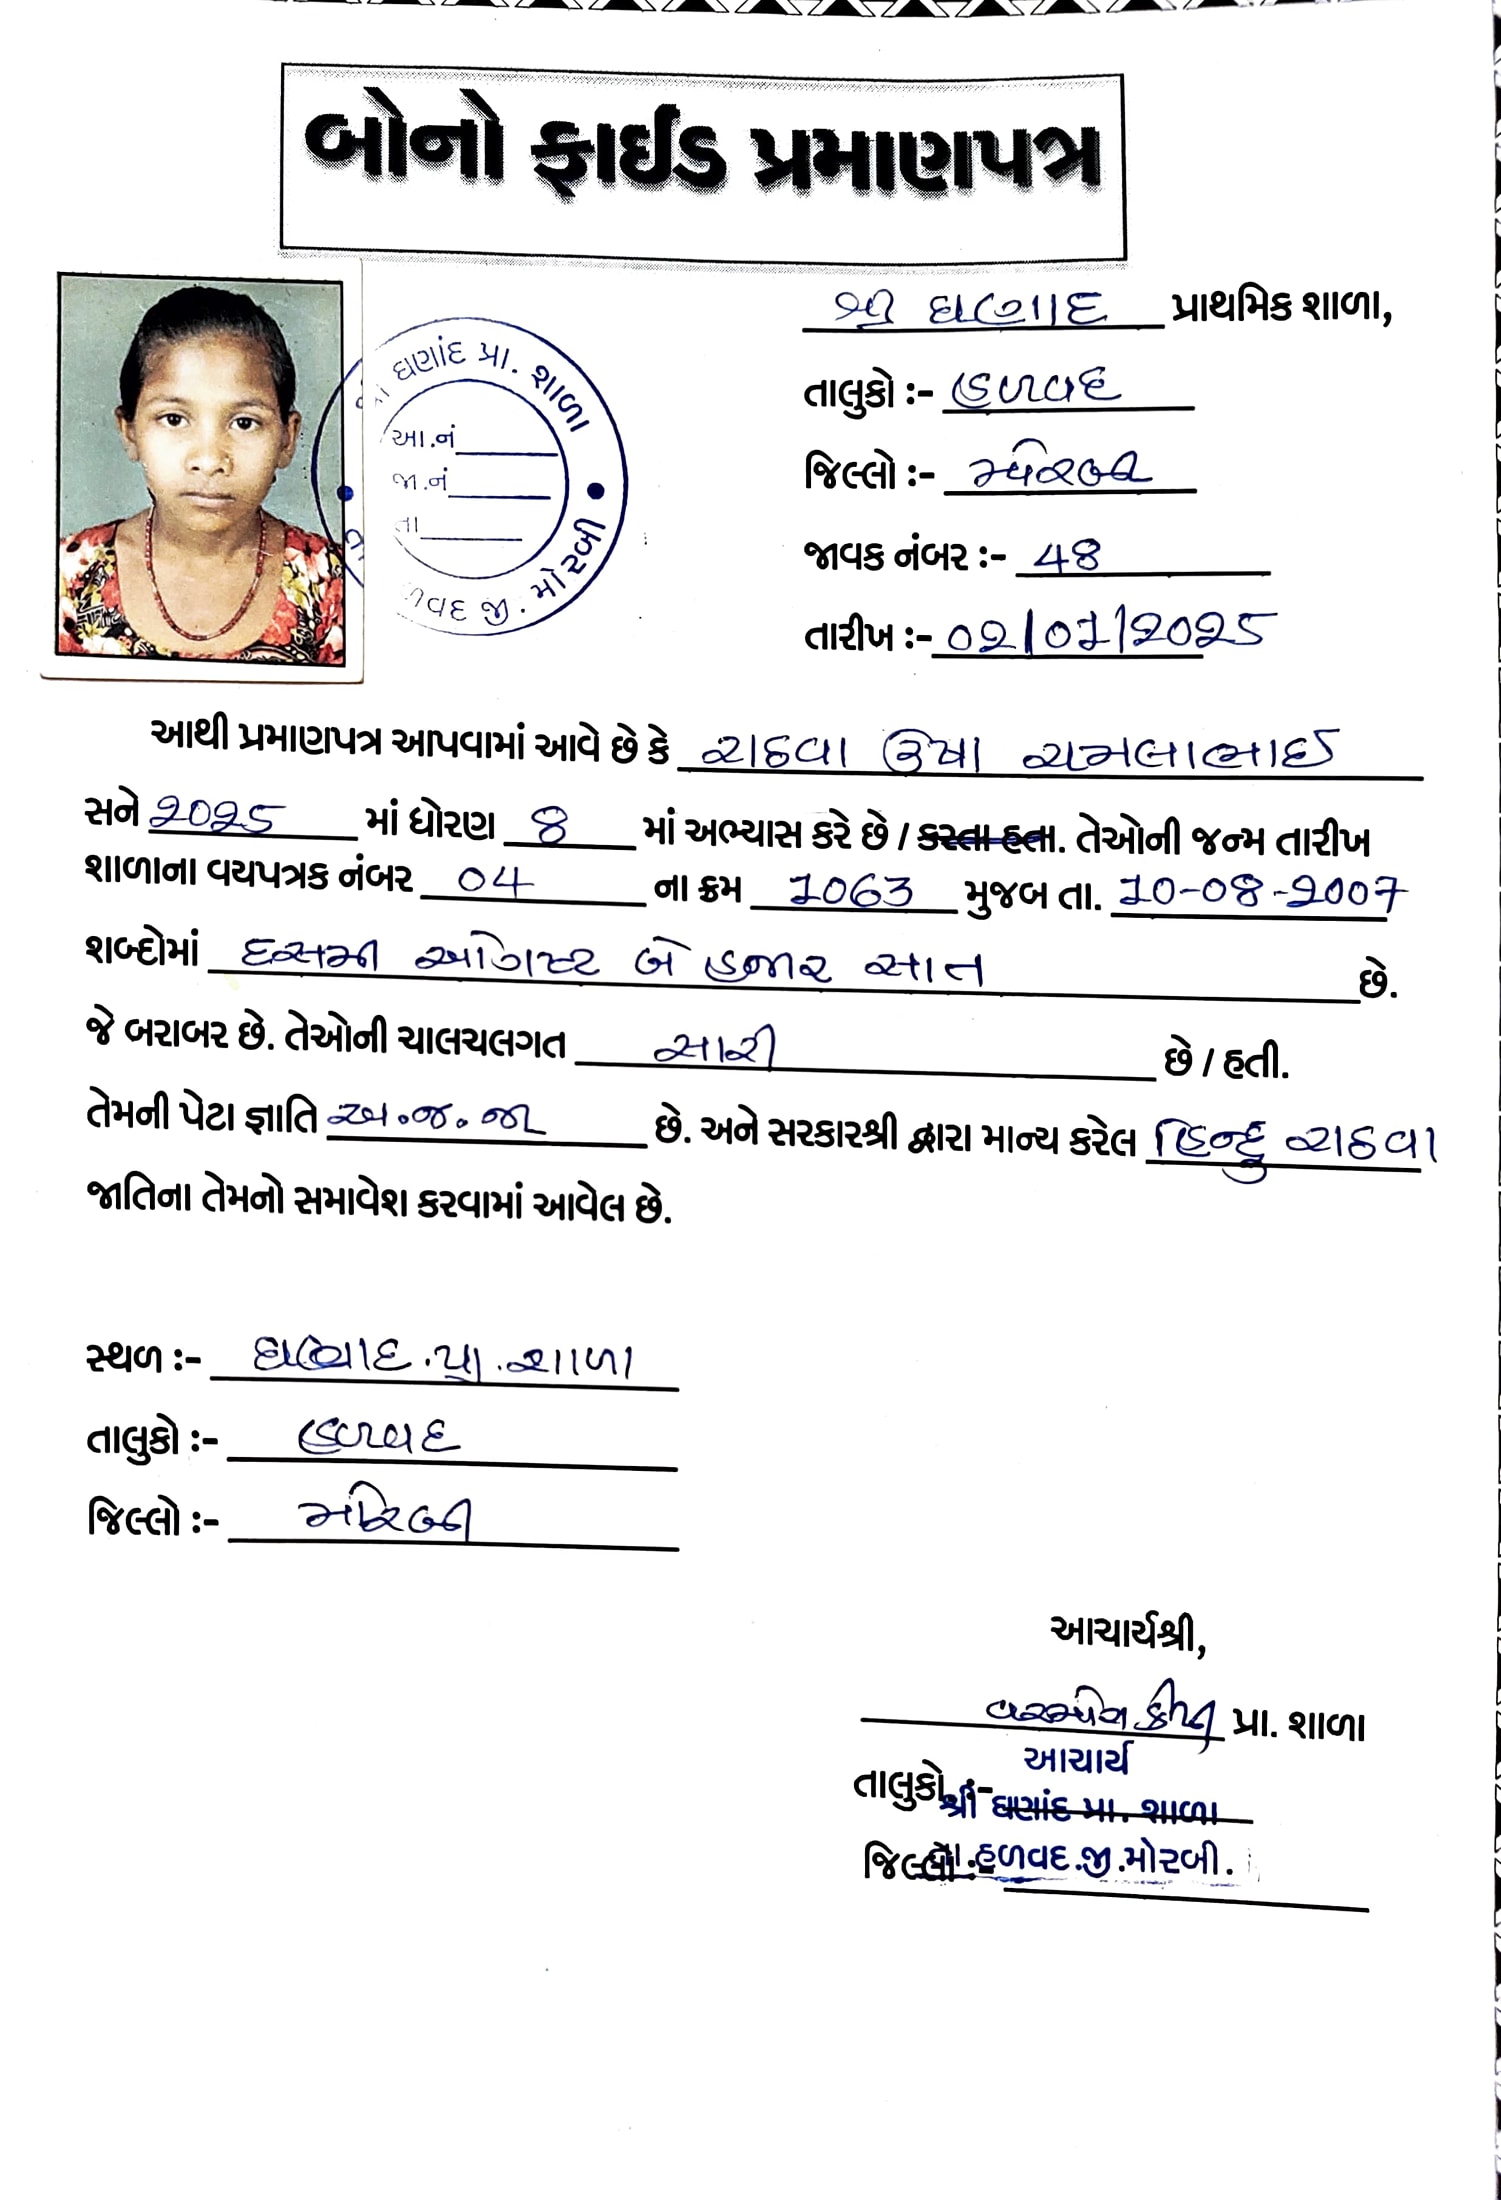 બોનો ફાઈડ પ્રમાણપત્ર
શ્રી ઘણાદ પ્રાથમિક શાળા,
તાલુકો :- હળવદ
જિલ્લો :- મોરબી
જાવક નંબર :- 48
તારીખ :- 02/07/2025
ઘણાંદ પ્રા. શાળા
આ.નં
જા.નં
તા
ળવદ જી. મોરબી
આથી પ્રમાણપત્ર આપવામાં આવે છે કે રાઠવા ઉષા રામલાભાઈ
સને 2025 માં ધોરણ 8 માં અભ્યાસ કરે છે / કરતા હતા. તેઓની જન્મ તારીખ
શાળાના વયપત્રક નંબર 04 ના ક્રમ 1063 મુજબ તા. 10-08-2007
શબ્દોમાં દસમી ઓગષ્ટ બે હજાર સાત છે.
જે બરાબર છે. તેઓની ચાલચલગત સારી છે / હતી.
તેમની પેટા જ્ઞાતિ અ.જ.જા છે. અને સરકારશ્રી દ્વારા માન્ય કરેલ હિન્દુ રાઠવા
જાતિના તેમનો સમાવેશ કરવામાં આવેલ છે.
સ્થળ :- ઘણાદ.પ્રા.શાળા
તાલુકો :- હળવદ
જિલ્લો :- મોરબી
આચાર્યશ્રી,
પ્રા. શાળા
આચાર્ય
તાલુકો :-
શ્રી ઘણાંદ પ્રા. શાળા
જિલ્લો :-
તા. હળવદ.જી.મોરબી.